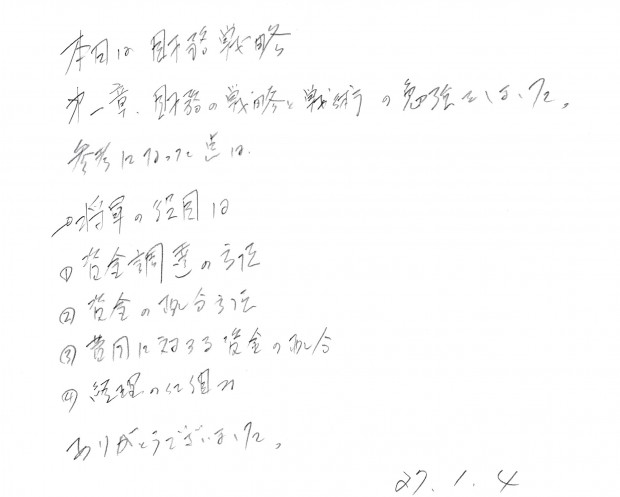 本日は財務戦略
第一章、財務の戦略と戦術の勉強でした。
参考になった点は、
将軍の役目は
① 資金調達の方法
② 資金の配分方法
③ 費用に対する資金の配分
④ 経理の仕組み
ありがとうございました。
27. 1. 4